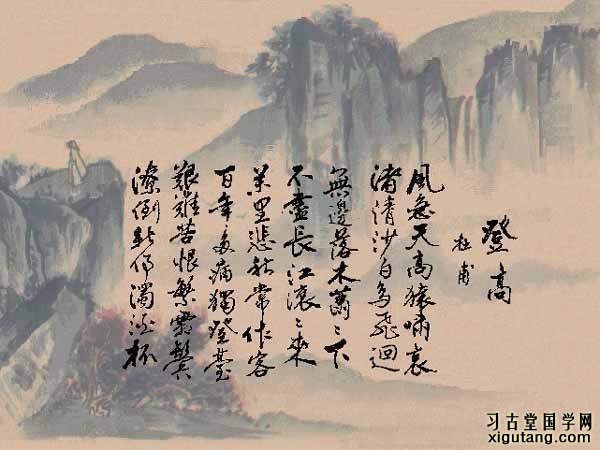 登高
杜甫
風急天高猿嘯哀
渚清沙白鳥飛迴
無邊落木蕭〻下
不盡長江滾〻來
万里悲秋常作客
百年多病獨登臺
艱難苦恨繁霜鬢
潦倒新停濁酒杯
习古堂国学网
xigutang.com